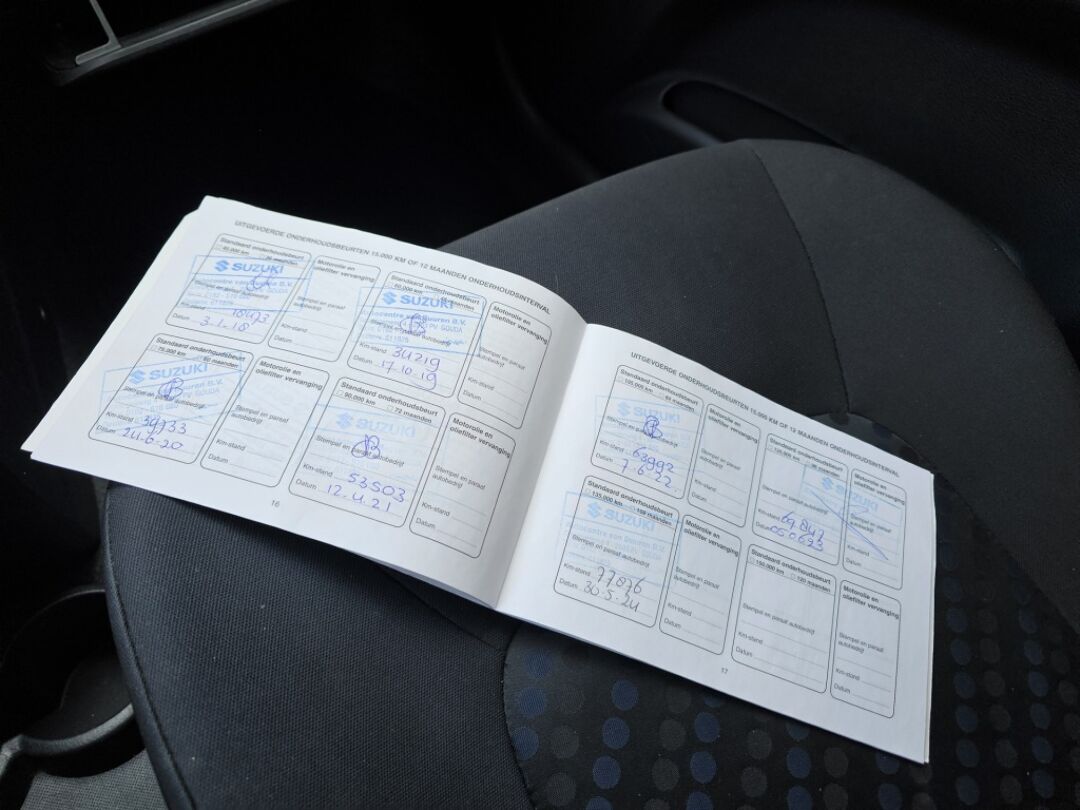 UITGEVOERDE ONDERHOUDSBEURTEN 15.000 KM OF 12 MAANDEN ONDERHOUDSINTERVAL
Standaard onderhoudsbeurt
45.000 km
SUZUKI
Stempel en paraaf autobedrijf
Km-stand
Datum 3-1-18
Motorolie en
oliefilter vervanging
Stempel en paraaf
autobedrijf
Km-stand
Datum
Standaard onderhoudsbeurt
60.000 km
SUZUKI
Autocentre van Buuren B.V.
GOUDA
Km-stand 34219
Datum 17.10.19
Motorolie en
oliefilter vervanging
Stempel en paraaf
autobedrijf
Km-stand
Datum
Standaard onderhoudsbeurt
75.000 km 60 maanden
SUZUKI
Stempel en paraaf autobedrijf
Km-stand 39733
Datum 24-6-20
Motorolie en
oliefilter vervanging
Stempel en paraaf
autobedrijf
Km-stand
Datum
Standaard onderhoudsbeurt
90.000 km 72 maanden
SUZUKI
Stempel en paraaf autobedrijf
Km-stand 53503
Datum 12.4.21
Motorolie en
oliefilter vervanging
Stempel en paraaf
autobedrijf
Km-stand
Datum
16
UITGEVOERDE ONDERHOUDSBEURTEN 15.000 KM OF 12 MAANDEN ONDERHOUDSINTERVAL
Standaard onderhoudsbeurt
105.000 km 84 maanden
SUZUKI
Stempel en paraaf autobedrijf
Km-stand 63992
Datum 7-6-22
Motorolie en
oliefilter vervanging
Stempel en paraaf
autobedrijf
Km-stand
Datum
Standaard onderhoudsbeurt
120.000 km 96 maanden
SUZUKI
Stempel en paraaf autobedrijf
Km-stand 69.847
Datum 050623
Motorolie en
oliefilter vervanging
Stempel en paraaf
autobedrijf
Km-stand
Datum
Standaard onderhoudsbeurt
135.000 km 108 maanden
SUZUKI
Autocentre van Buuren B.V.
Stempel en paraaf autobedrijf
Km-stand 77036
Datum 30-5-24
Motorolie en
oliefilter vervanging
Stempel en paraaf
autobedrijf
Km-stand
Datum
Standaard onderhoudsbeurt
150.000 km 120 maanden
Stempel en paraaf autobedrijf
Km-stand
Datum
Motorolie en
oliefilter vervanging
Stempel en paraaf
autobedrijf
Km-stand
Datum
17